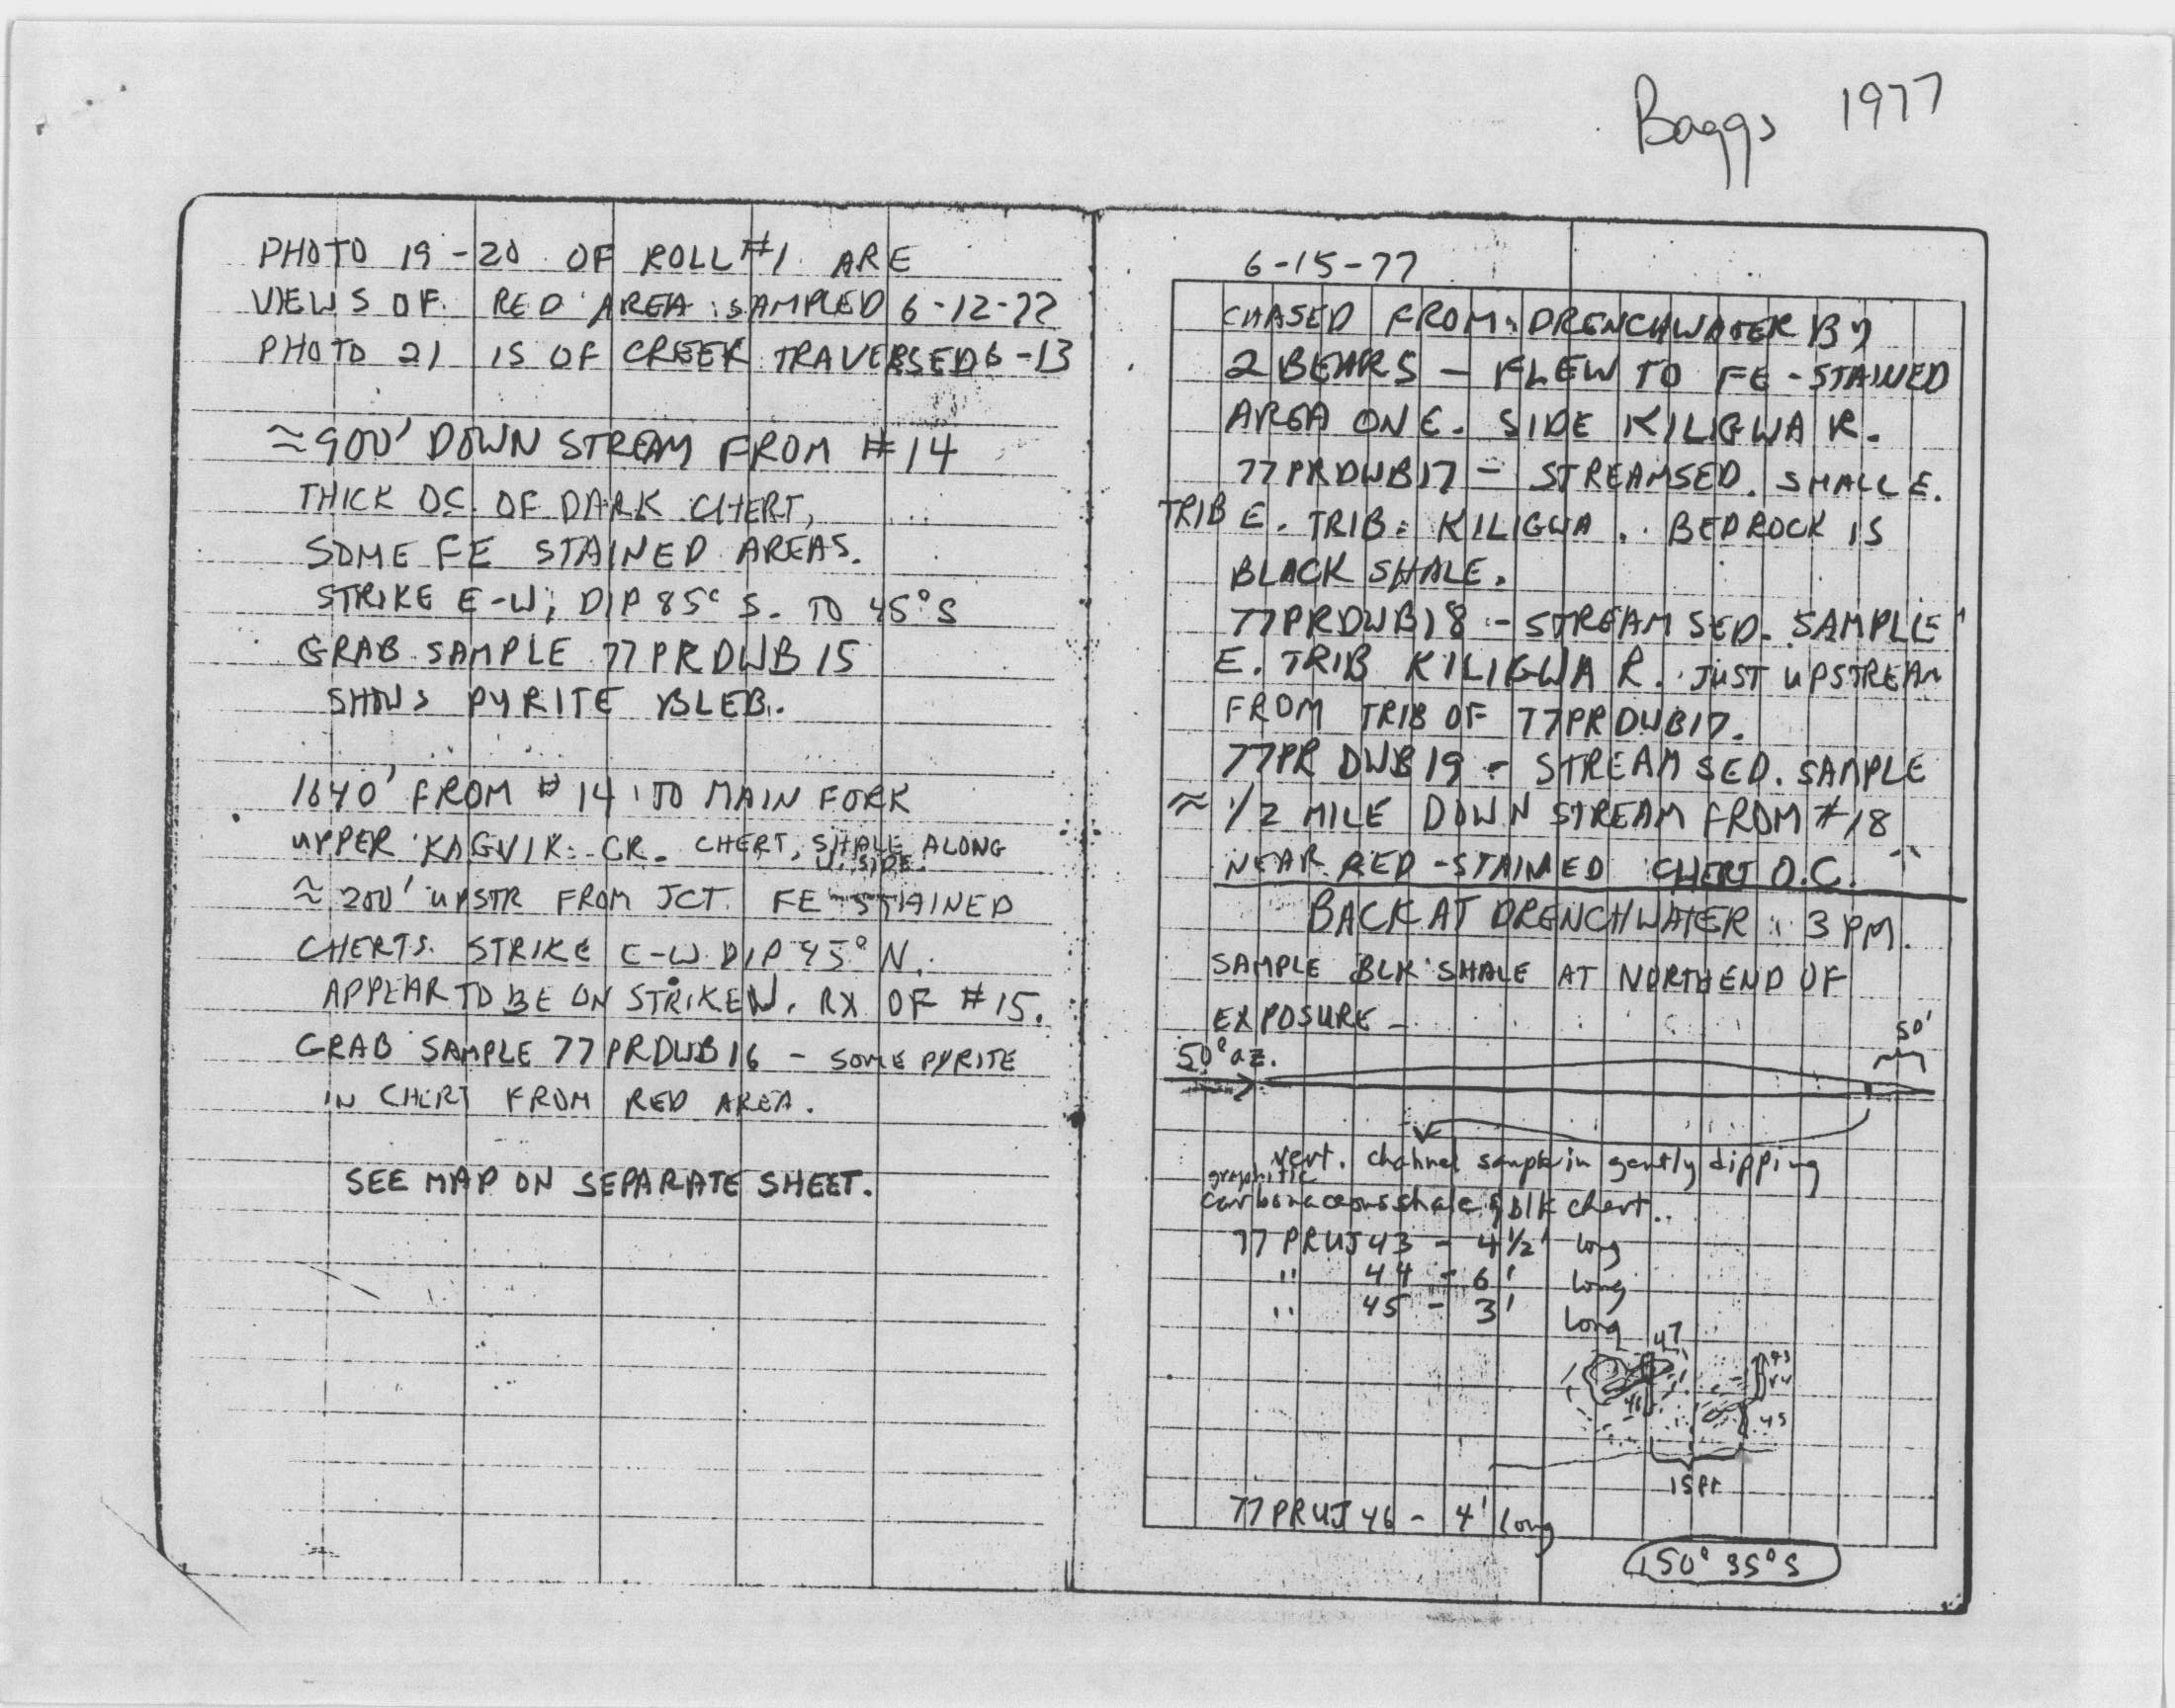 Baggs 1977
PHOTO 19-20 OF ROLL #1 ARE
VIEWS OF RED AREA SAMPLED 6-12-77
PHOTO 21 IS OF CREEK TRAVERSED 6-13
≈900' DOWN STREAM FROM #14
THICK OC. OF DARK CHERT,
SOME FE STAINED AREAS.
STRIKE E-W; DIP 85° S. TO 45°S
GRAB SAMPLE 77PRDWB15
SHOWS PYRITE BLEB.
1640' FROM #14 TO MAIN FORK
UPPER KAGVIK CR. CHERT, SHALE ALONG
SIDE.
≈ 200' UPSTR FROM JCT. FE STAINED
CHERTS. STRIKE E-W DIP 45° N.
APPEAR TO BE ON STRIKE W. RX OF #15.
GRAB SAMPLE 77PRDWB16 - SOME PYRITE
IN CHERT FROM RED AREA.
SEE MAP ON SEPARATE SHEET.
6-15-77
CHASED FROM DRENCHWATER BY
2 BEARS - FLEW TO FE-STAINED
AREA ON E. SIDE KILIGWA R.
77PRDWB17 - STREAMSED. SMALL E.
TRIB E. TRIB. KILIGWA. BEDROCK IS
BLACK SHALE.
77PRDWB18 - STREAM SED. SAMPLE
E. TRIB KILIGWA R. JUST UPSTREAM
FROM TRIB OF 77PRDWB17.
77PRDWB19 - STREAM SED. SAMPLE
≈ 1/2 MILE DOWN STREAM FROM #18
NEAR RED-STAINED CHERT O.C.
BACK AT DRENCHWATER 3 PM.
SAMPLE BLK SHALE AT NORTH END OF
EXPOSURE -
50'
50° az.
vert. channel sample in gently dipping
graphitic
carbonaceous shale & blk chert.
77PRUJ43 - 4 1/2' long
" 44 - 6' long
" 45 - 3' long
47
43
44
46
45
15 ft
77PRUJ46 - 4' long
150° 35°S